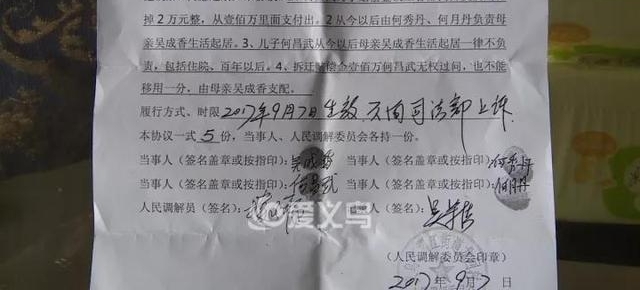 掉2万元整，从壹佰万里面支付出。2从今以后由何秀丹、何月丹负责母
亲吴成香生活起居。3、儿子何昌武从今以后母亲吴成香生活起居一律不负
责，包括住院、百年以后。4、拆迁赔偿金壹佰万何昌武无权过问，也不能
移用一分，由母亲吴成香支配。
履行方式、时限2017年9月7日生效
本协议一式5份，当事人、人民调解委员会各持一份。
当事人（签名盖章或按指印）：吴成香 当事人（签名盖章或按指印）：何秀丹
当事人（签名盖章或按指印）：何昌武 当事人（签名盖章或按指印）：何月丹
人民调解员（签名）： 当事人（签名）：
爱义乌
（人民调解委员会印章）
2017年9月7日